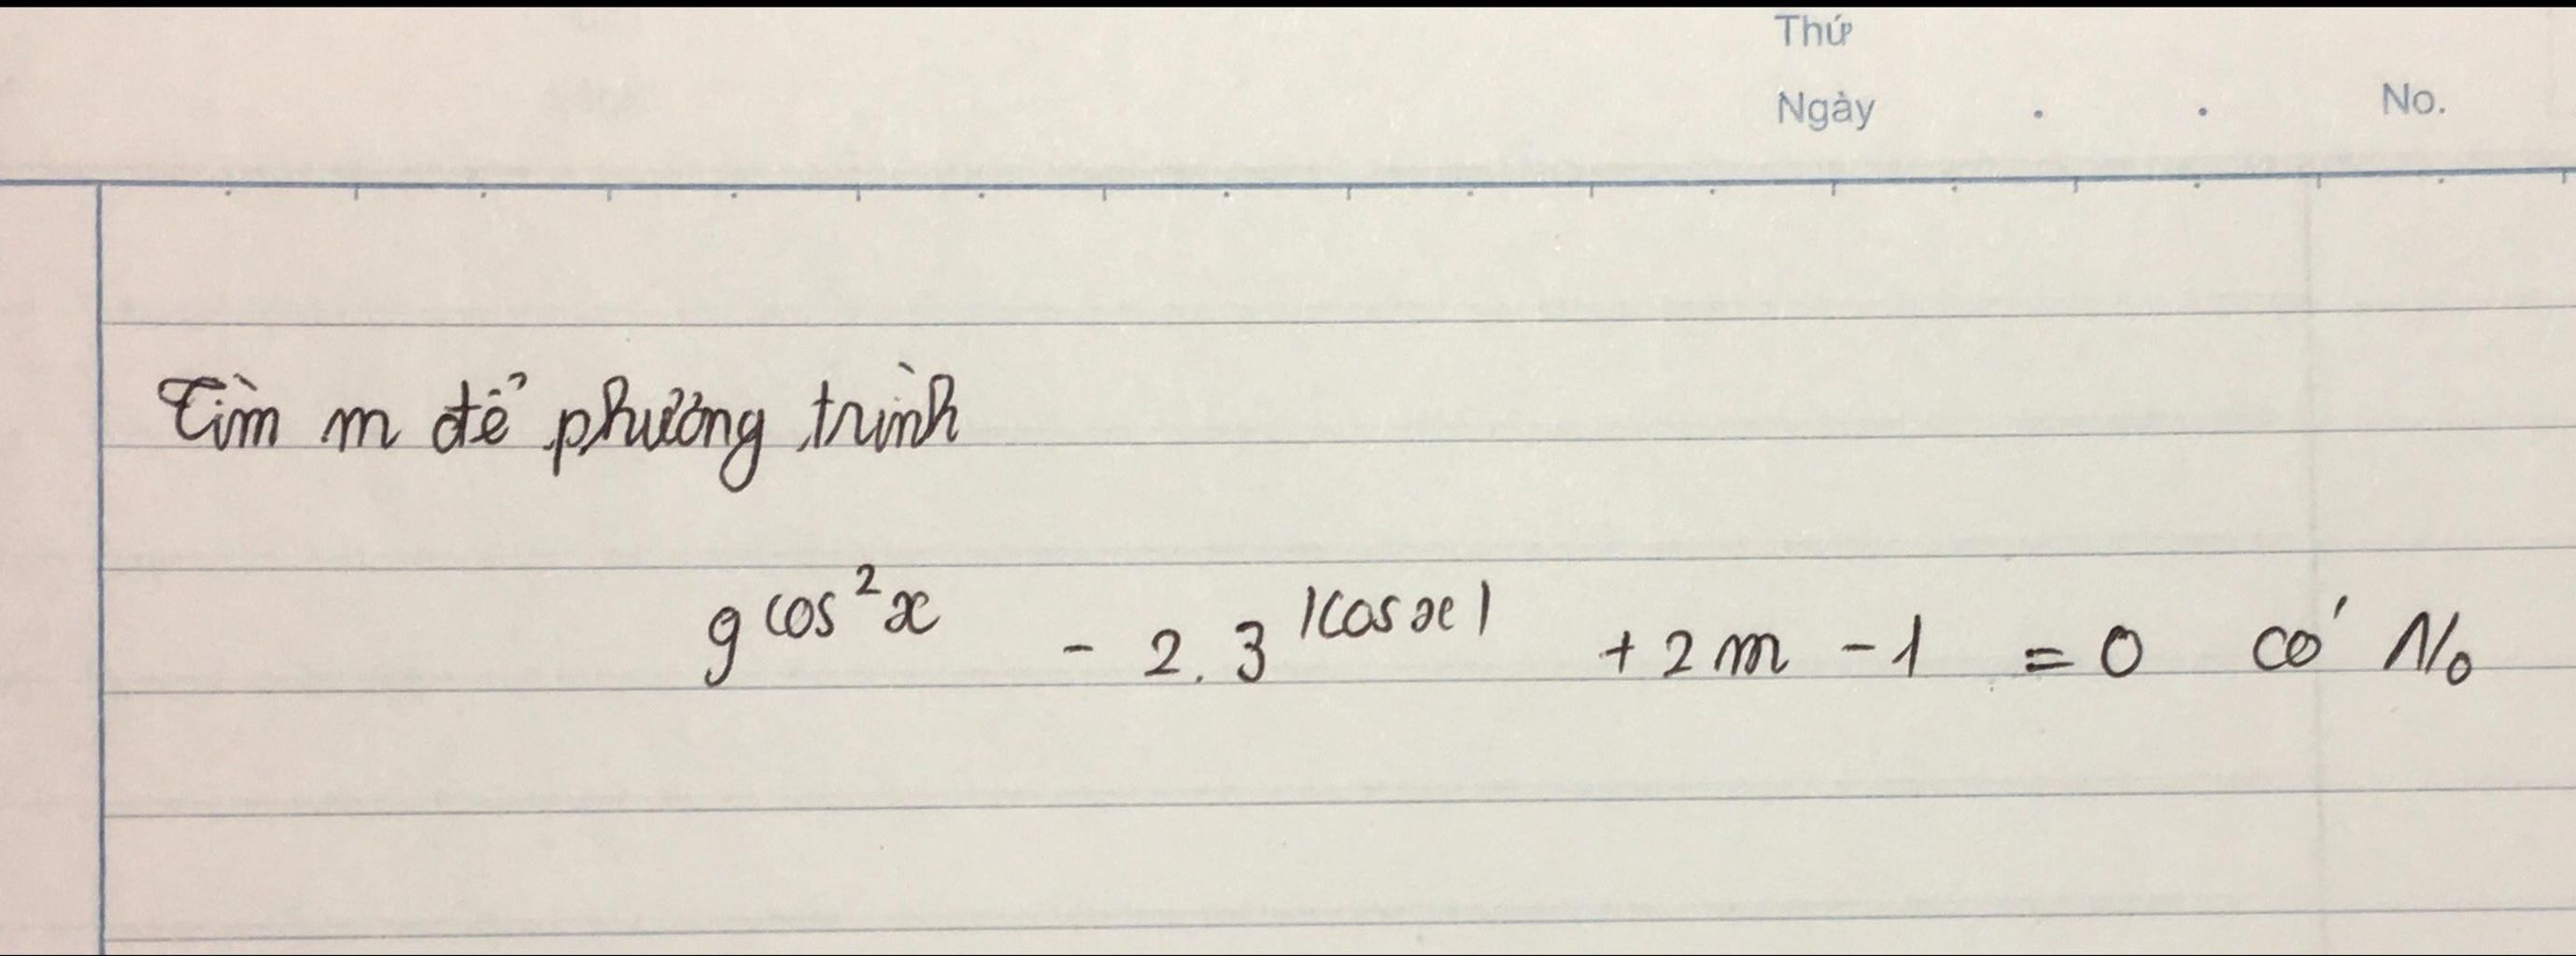 Thứ
Ngày . . No.
Tìm m để phương trình
9^{cos^2 x} - 2.3^{|cos x|} + 2m - 1 = 0 có N_0